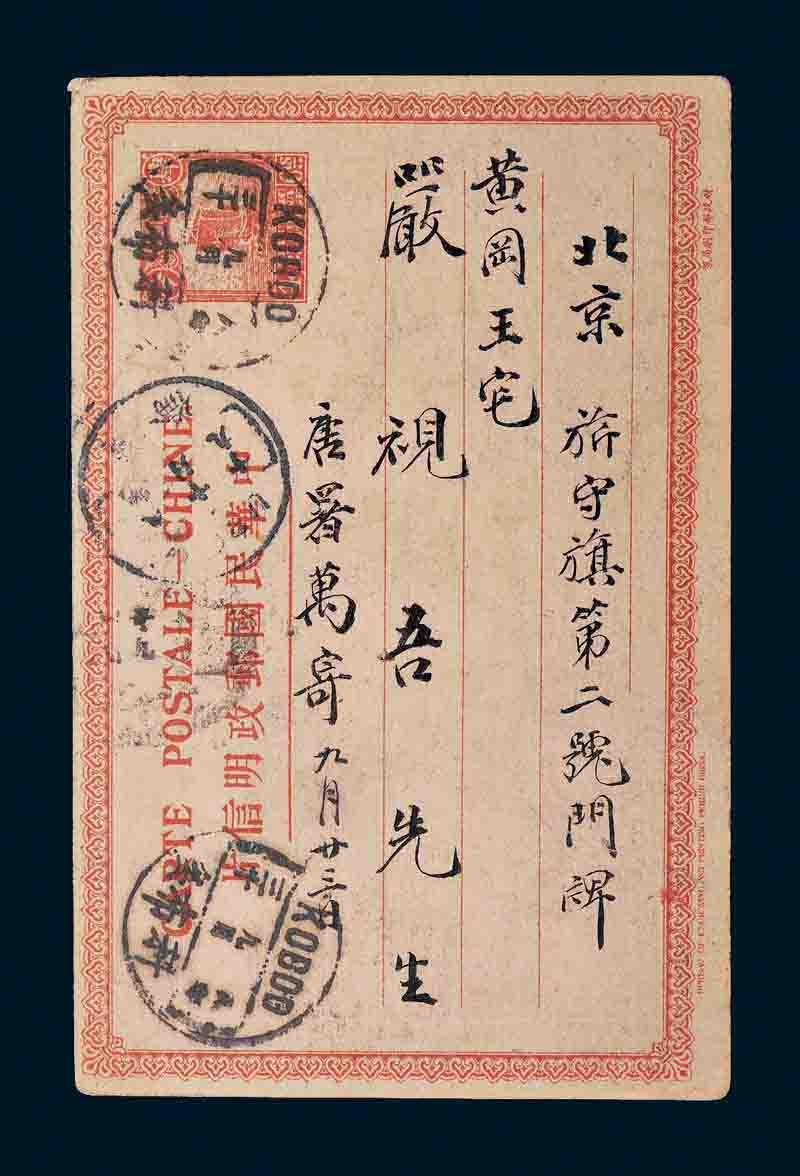 北京 旂守旗第二號門牌
黄岡王宅
嚴視吾先生
唐署萬寄 九月廿三日
中華民國郵政明信片
CARTE POSTALE—CHINE
KOBDO
KOBDO